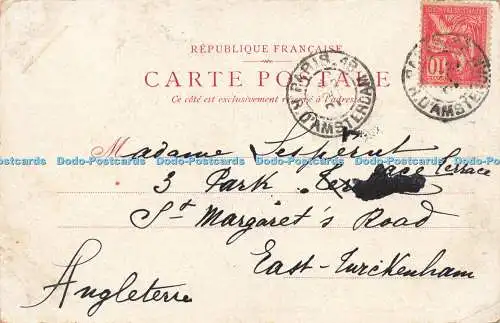 RÉPUBLIQUE FRANÇAISE
CARTE POSTALE
Ce côté est exclusivement réservé à l'adresse
PARIS
R. D'AMSTERDAM
R. D'AMSTERDAM
10
Madame Lespernt
3 Park Terrace
St Margaret's Road
East-Twickenham
Angleterre
Dodo-Postcards Dodo-Postcards Dodo-Postcards Dodo-Postcards Dodo-Postcards Dodo-Postcards Dodo-Postcards